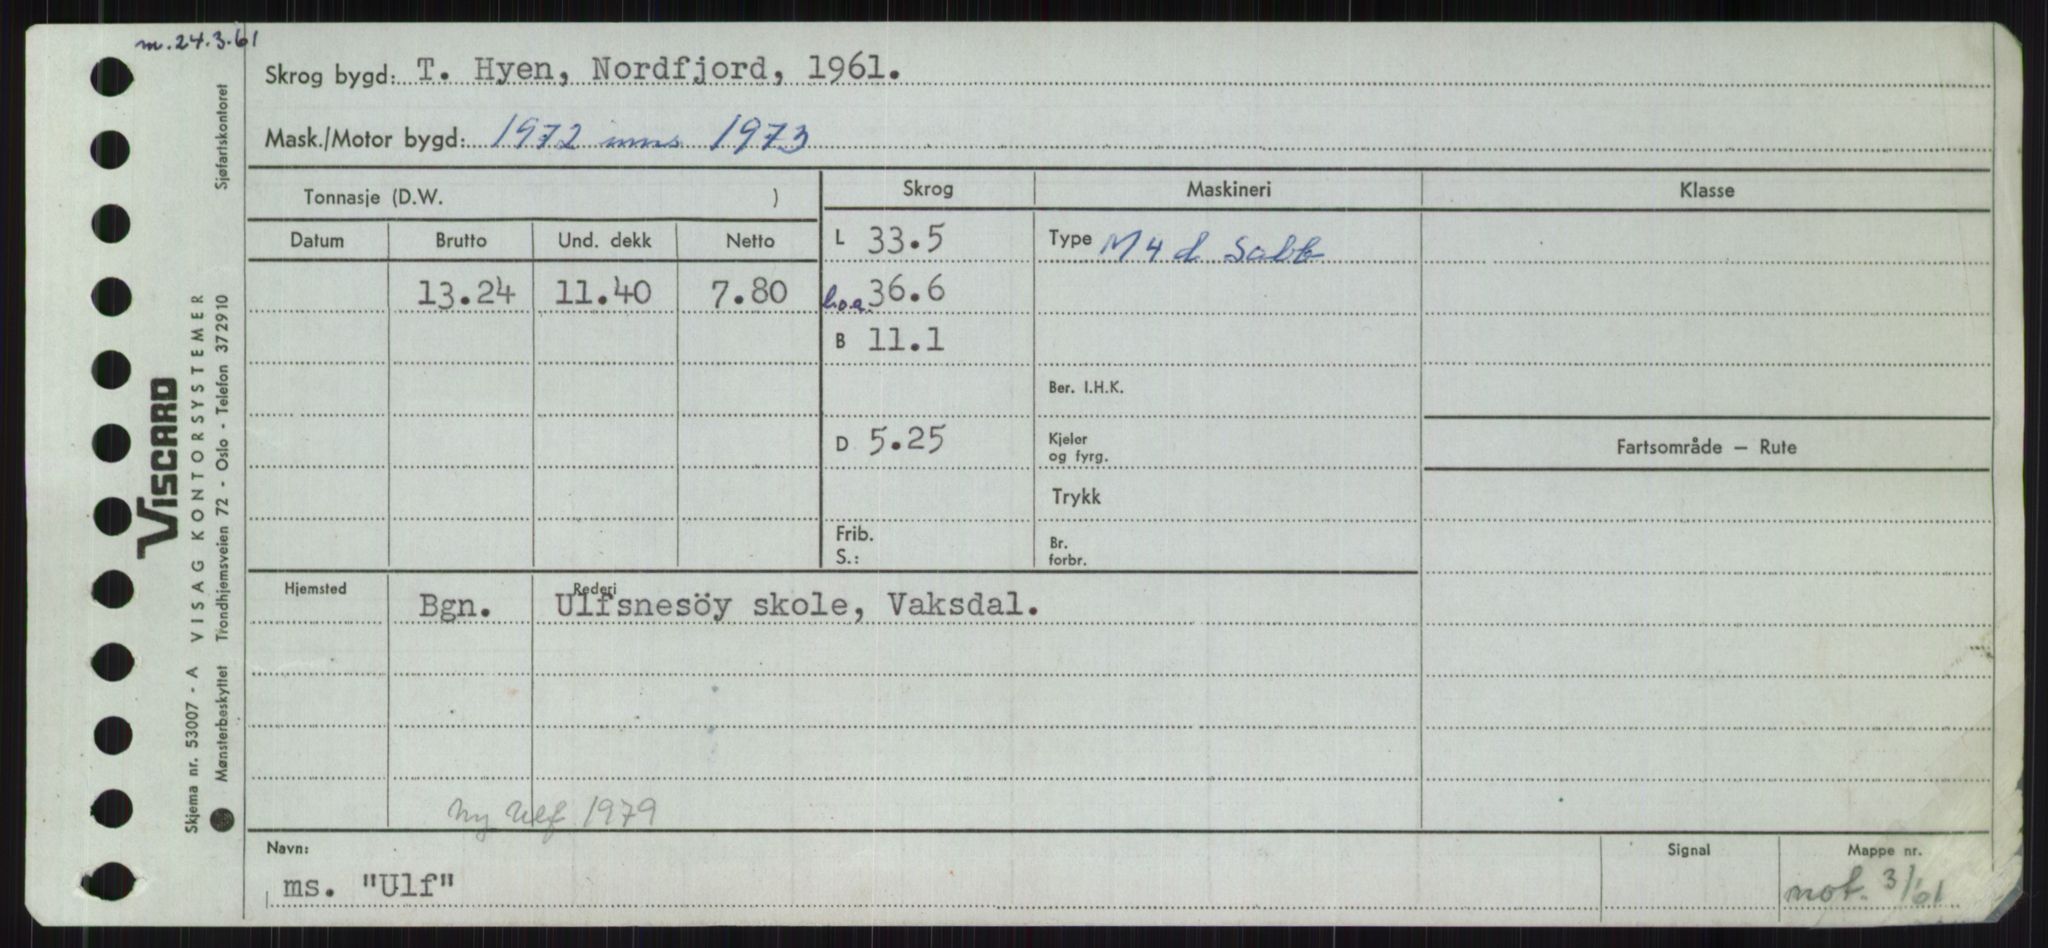 m. 24.3.61
Skrog bygd: T. Hyen, Nordfjord, 1961.
Mask./Motor bygd: 1972 inns 1973
Tonnasje (D.W. )
Skrog
Maskineri
Klasse
Datum Brutto Und. dekk Netto
L 33.5
Type M 4 d Sabb
13.24 11.40 7.80
l.o.a. 36.6
B 11.1
Ber. I.H.K.
D 5.25
Kjeler
og fyrg.
Fartsområde — Rute
Trykk
Frib.
S.:
Br.
forbr.
Hjemsted Rederi
Bgn. Ulfsnesöy skole, Vaksdal.
Ny Ulf 1979
Navn: Signal Mappe nr.
ms. "Ulf" mot. 3/61
Sjøfartskontoret
VISCARD
VISAG KONTORSYSTEMER
Trondhjemsveien 72 - Oslo - Telefon 372910
Skjema nr. 53007 - A
Mønsterbeskyttet